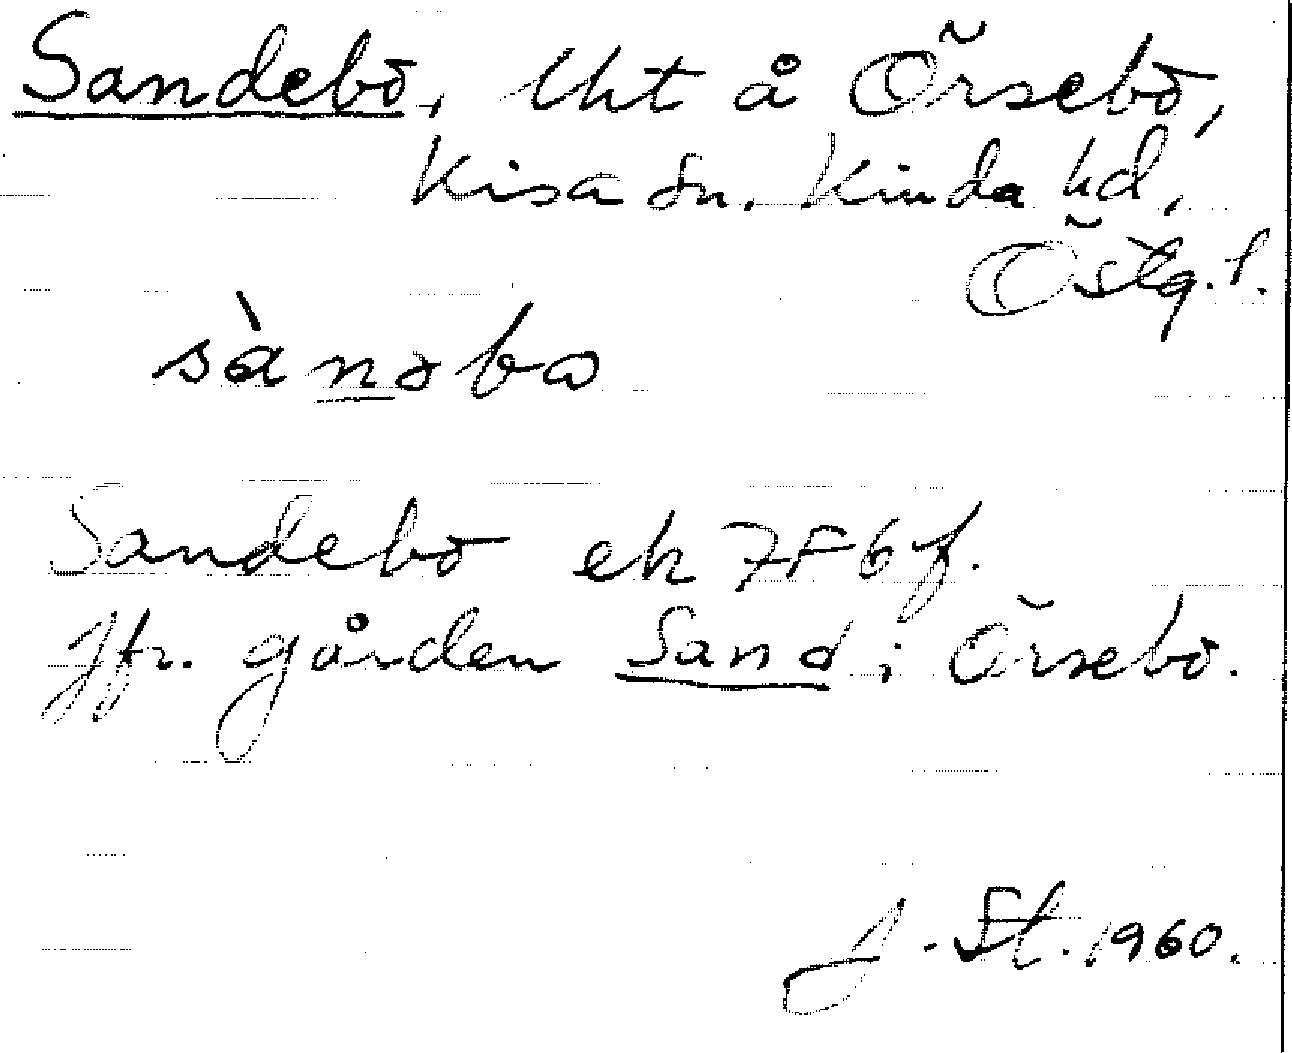 Sandebo, lht å Örsebo,
Kisa sn. Kinda hd,
Östg. l.
sànəbo
Sandebo ek 7F6f.
Jfr. gården Sand i Örsebo.
J. St. 1960.